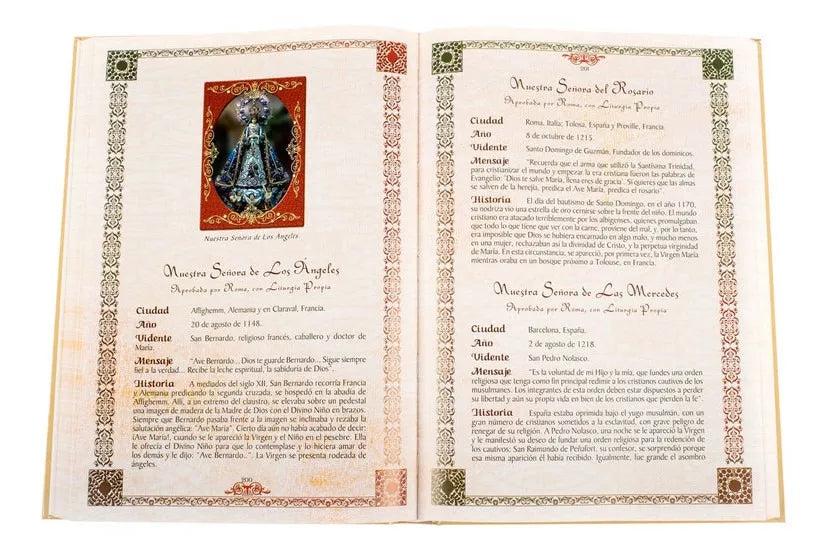 Nuestra Señora de Los Ángeles
Nuestra Señora de Los Ángeles
Aprobada por Roma, con Liturgia Propia
Ciudad Afflighemm, Alemania y en Claraval, Francia.
Año 20 de agosto de 1148.
Vidente San Bernardo, religioso francés, caballero y doctor de
María.
Mensaje "Ave Bernardo... Dios te guarde Bernardo... Sigue siempre
fiel a la verdad... Recibe la leche espiritual, la sabiduría de Dios".
Historia A mediados del siglo XII, San Bernardo recorría Francia
y Alemania predicando la segunda cruzada, se hospedó en la abadía de
Afflighemm. Allí, a un extremo del claustro, se elevaba sobre un pedestal
una imagen de madera de la Madre de Dios con el Divino Niño en brazos.
Siempre que Bernardo pasaba frente a la imagen se inclinaba y rezaba la
salutación angélica: "Ave María". Cierto día aún no había acabado de decir:
¡Ave María!, cuando se le apareció la Virgen y el Niño en el pesebre. Ella
le ofrecía el Divino Niño para que lo contemplase y lo hiciera amar de
los demás y le dijo: "Ave Bernardo..". La Virgen se presenta rodeada de
ángeles.
200
201
Nuestra Señora del Rosario
Aprobada por Roma, con Liturgia Propia
Ciudad Roma, Italia; Tolosa, España y Proville, Francia.
Año 8 de octubre de 1215.
Vidente Santo Domingo de Guzmán, Fundador de los dominicos.
Mensaje "Recuerda que el arma que utilizó la Santísima Trinidad,
para cristianizar el mundo y empezar la era cristiana fueron las palabras de
Evangelio: "Dios te salve María, llena eres de gracia". Si quieres que las almas
se salven de la herejía, predica el Ave María, predica el rosario".
Historia El día del bautismo de Santo Domingo, en el año 1170,
su nodriza vio una estrella de oro cernirse sobre la frente del niño. El mundo
cristiano era atacado terriblemente por los albigenses, quienes promulgaban
que todo lo que tiene que ver con la carne, proviene del mal, y, por lo tanto,
era imposible que Dios se hubiera encarnado en algo malo, y mucho menos
en una mujer, rechazaban así la divinidad de Cristo, y la perpetua virginidad
de María. En esta circunstancia, se apareció, por primera vez, la Virgen María
mientras oraba en un bosque próximo a Tolouse, en Francia.
Nuestra Señora de Las Mercedes
Aprobada por Roma, con Liturgia Propia
Ciudad Barcelona, España.
Año 2 de agosto de 1218.
Vidente San Pedro Nolasco.
Mensaje "Es la voluntad de mi Hijo y la mía, que fundes una orden
religiosa que tenga como fin principal redimir a los cristianos cautivos de los
musulmanes. Los integrantes de esta orden deben estar dispuestos a perder
su libertad y aún su propia vida en bien de los cristianos que pierden la fe".
Historia España estaba oprimida bajo el yugo musulmán, con un
gran número de cristianos sometidos a la esclavitud, con grave peligro de
renegar de su religión. A Pedro Nolasco, una noche se le apareció la Virgen
y le manifestó su deseo de fundar una orden religiosa para la redención de
los cautivos; San Raimundo de Peñafort, su confesor, se sorprendió porque
esa misma aparición él había recibido. Igualmente, fue grande el asombro